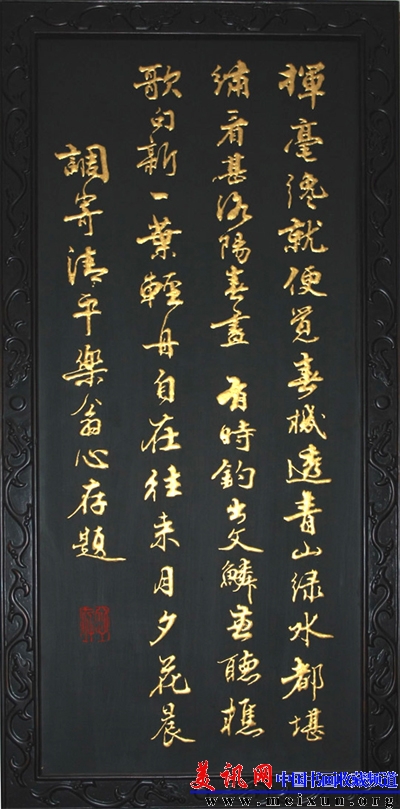 揮毫纔就便覺春機透青山綠水都堪
繡看甚洛陽春晝 有時釣出文鱗聽樵
歌句新一葉輕舟自在往来月夕花晨
調寄清平樂翁心存題
美訊网
中国书画收藏频道
www.meixun.org